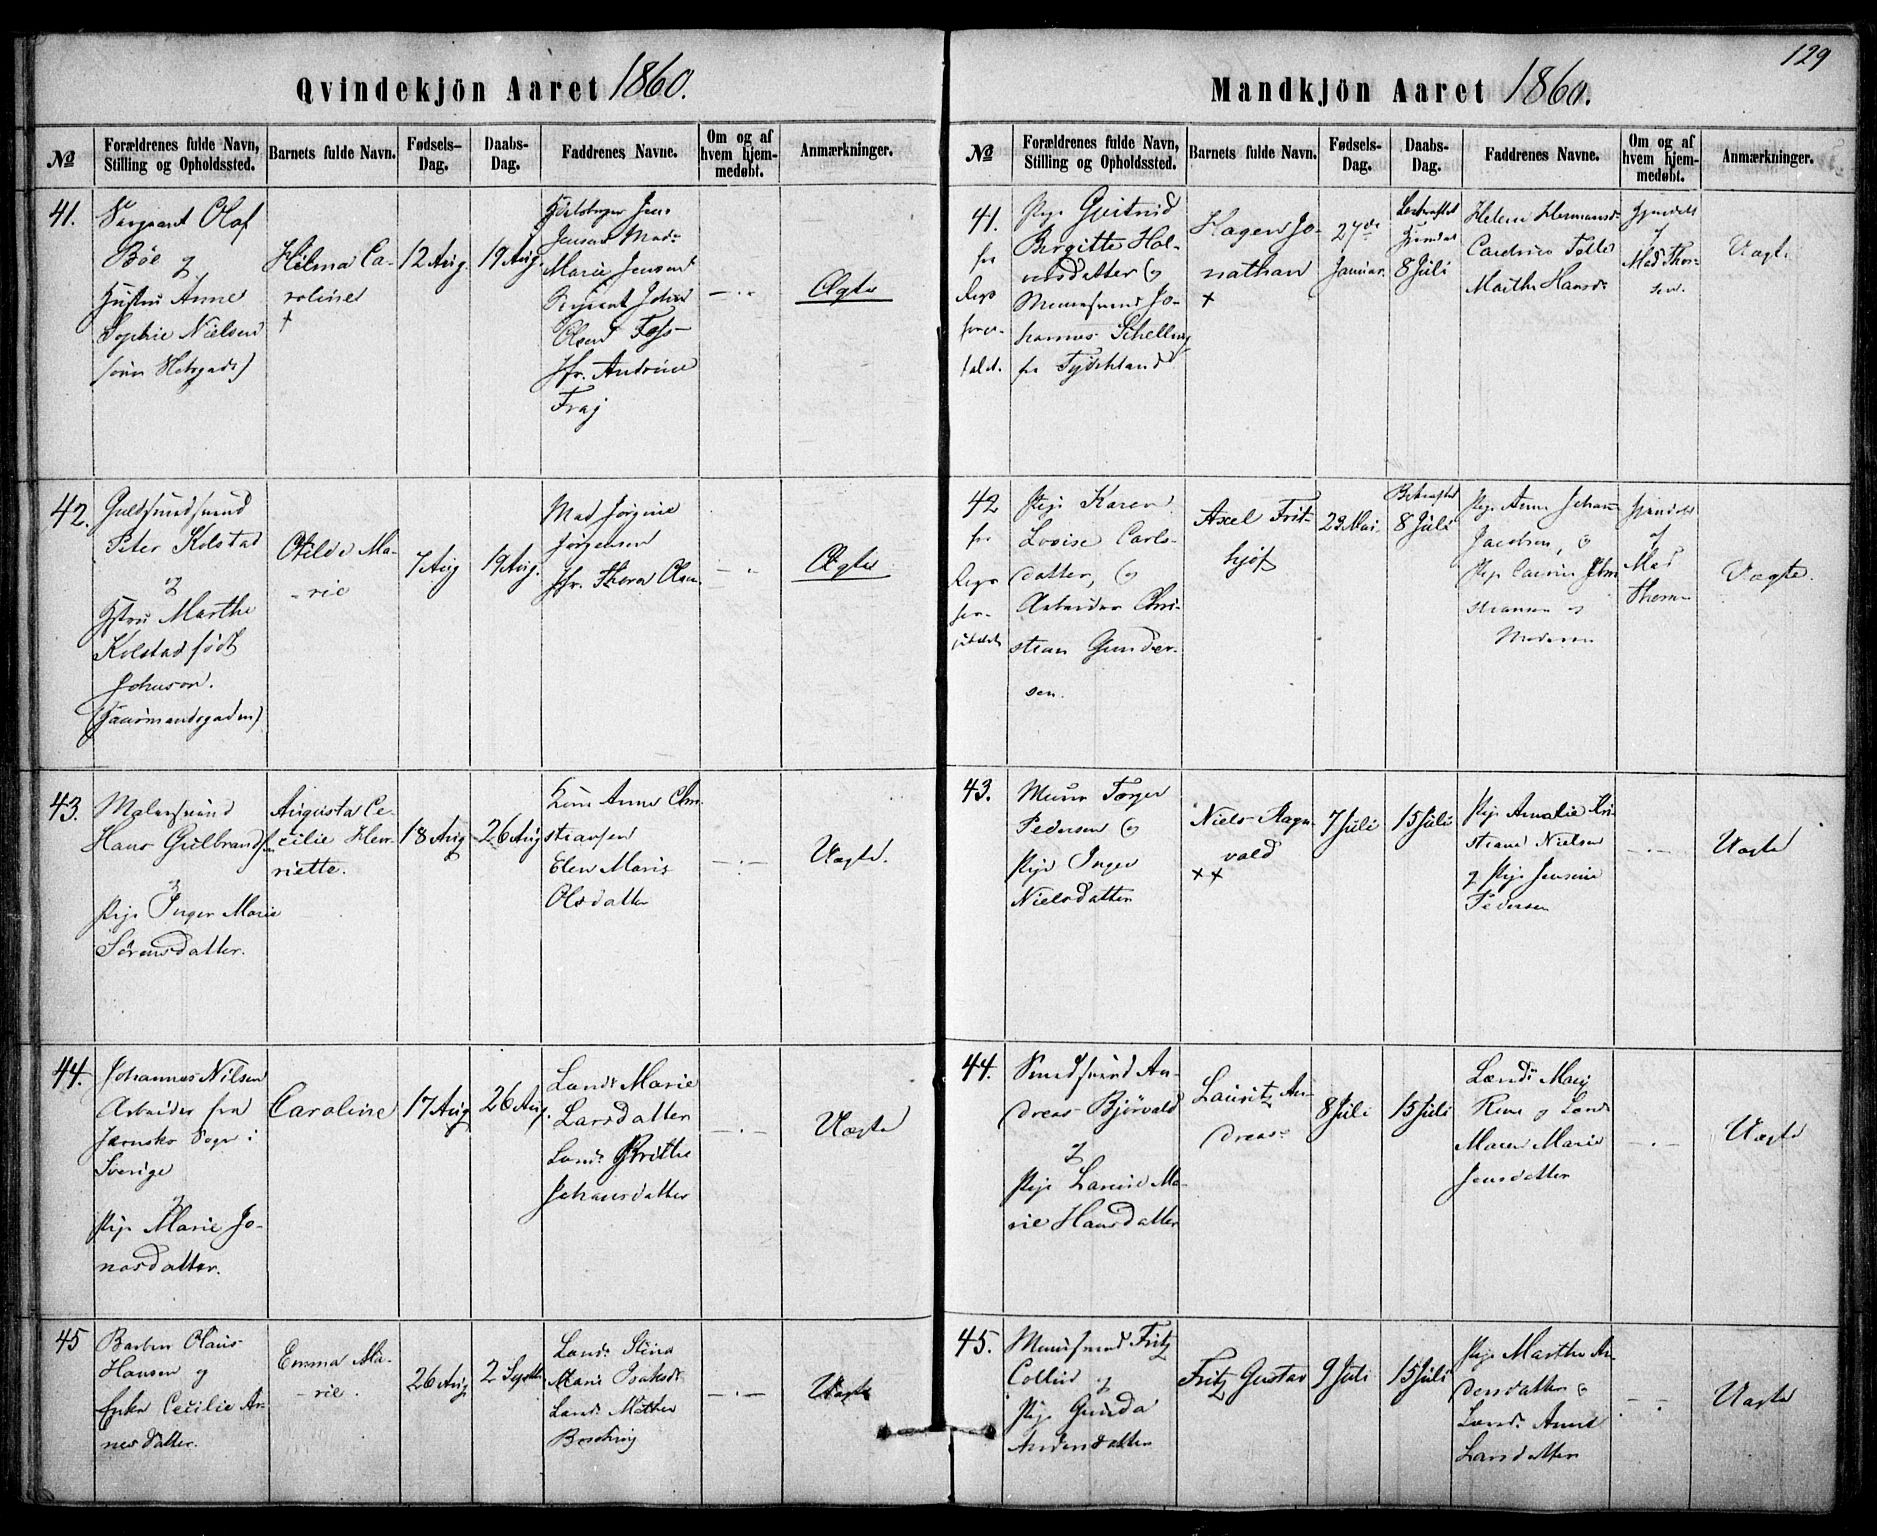 129
Qvindekjön Aaret 1860.
No
Forældrenes fulde Navn, Stilling og Opholdssted.
Barnets fulde Navn.
Fødsels-Dag.
Daabs-Dag.
Faddrenes Navne.
Om og af hvem hjem-medøbt.
Anmærkninger.
41.
Sergeant Olaf
Böe og
Hustru Anne
Sophie Nielsen
Hilma Ca-
roline
+
12 Aug.
19 Aug.
Jensen Mad:
Marie Jensen
Sergeant Johan
Olsen Foss
Jfr. Andrine
— . —
Ægte
42.
Guldsmedsvend
Peter Kolstad
og
Hstru Marthe
Kolstad født
Johnson.
Otilde Ma-
rie
7 Aug
19 Aug.
Mad Jørgine
Jørgensen
Jfr. Thora Olsen
— . —
Ægte
43.
Malersvend
Hans Gulbrandsen
og
Pige Inger Marie
Sörensdatter.
Augusta Ce-
cilie Hen-
riette.
18 Aug
26 Aug
Kone Anne Chri-
stiansen
Elen Marie
Olsdatter
— . —
Uægte.
44.
Johannes Nilsen
Arbeider fra
Jernsko Sogn i
Sverige
og
Pige Marie Jo-
nasdatter.
Caroline
17 Aug
26 Aug.
Land: Marie
Larsdatter
Land: Brithe
Johansdatter
— . —
Uægte
45
Barber Olaus
Hansen og
Enke Cecilie Ar-
nesdatter.
Emma Ma-
rie.
26 Aug
2 Septbr
Land: Stina
Marie Isaksd:
Land: Mathea
— . —
Uægte
Mandkjön Aaret 1860.
No
Forældrenes fulde Navn, Stilling og Opholdssted.
Barnets fulde Navn.
Fødsels-Dag.
Daabs-Dag.
Faddrenes Navne.
Om og af hvem hjem-medøbt.
Anmærkninger.
41.
fra
Pige Gjertrud
Birgitte Hal-
vorsdatter og
Muursvend Jo-
hannes Schelling
fra Tydskland
Hagen Jo-
nathan
+
27de
Januar.
Bekræftet
8 Juli
Helene Hermansd:
Marthe Hansd:
Hjemdøbt
af
Mad Thor-
sen.
Uægte
42
fra
Pige Karen
Lovise Carls-
datter, og
Arbeider Chri-
stian Gunder-
sen.
Axel Frit-
hjof
23 Mai.
Bekræftet
8 Juli
Pige Anne Johan
Jacobsen, og
Pige Caroline Chri
stiansen og
Moderen
Hjemdøbt
af
Mad
Thorsen
Uægte.
43.
Muurer Torger
Pedersen og
Pige Inger
Nielsdatter
Niels Ragn-
vald
++
7 Juli
15 Juli
Pige Amalie Kri-
stiane Nielsen
og Pige Jensine
Pedersen
— . —
Uægte
44.
Smedsvend An-
dreas Bjørvald
og
Pige Laurine Ma-
rie Hansdatter
Lauritz An-
dreas
8 Juli
15 Juli
Land: Mari
Rene og Land:
Maren Marie
Jensdatter
— . —
Uægte
45.
Muursvend Fritz
Collin og
Pige Gunda
Andersdatter
Fritz Gustav
9 Juli
15 Juli
Pige Marthe An-
dersdatter og
Land: Anne
Larsdatter
— . —
Uægte